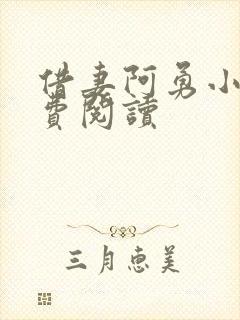 借妻阿勇小
費閱讀
三月惠美